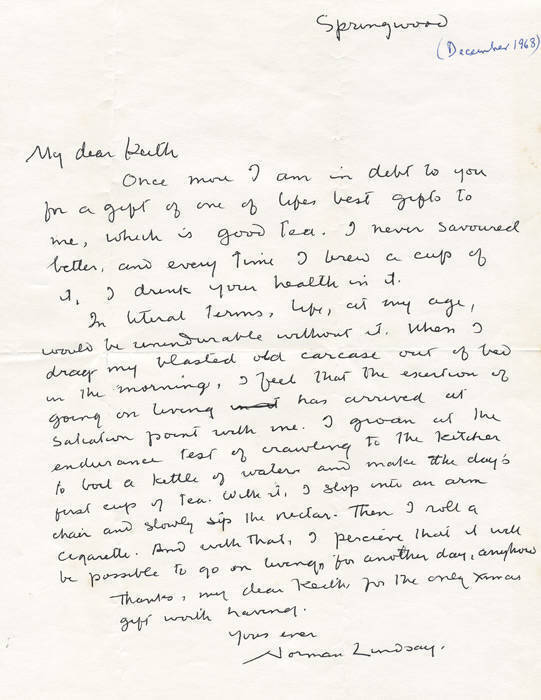 Springwood
(December 1968)
My dear Keith
Once more I am in debt to you
for a gift of one of lifes best gifts to
me, which is good tea. I never savoured
better, and every time I brew a cup of
it, I drink your health in it.
In literal terms, life, at my age,
would be unendurable without it. When I
drag my blasted old carcase out of bed
in the morning, I feel that the exertion of
going on living has arrived at
salvation point with me. I groan at the
endurance test of crawling to the kitchen
to boil a kettle of water and make the day's
first cup of tea. With it, I slop into an arm
chair and slowly sip the nectar. Then I roll a
cigarette. And with that, I percieve that it will
be possible to go on living, for another day, anyhow
Thanks, my dear Keith, for the only Xmas
gift worth having.
Yours ever
Norman Lindsay.